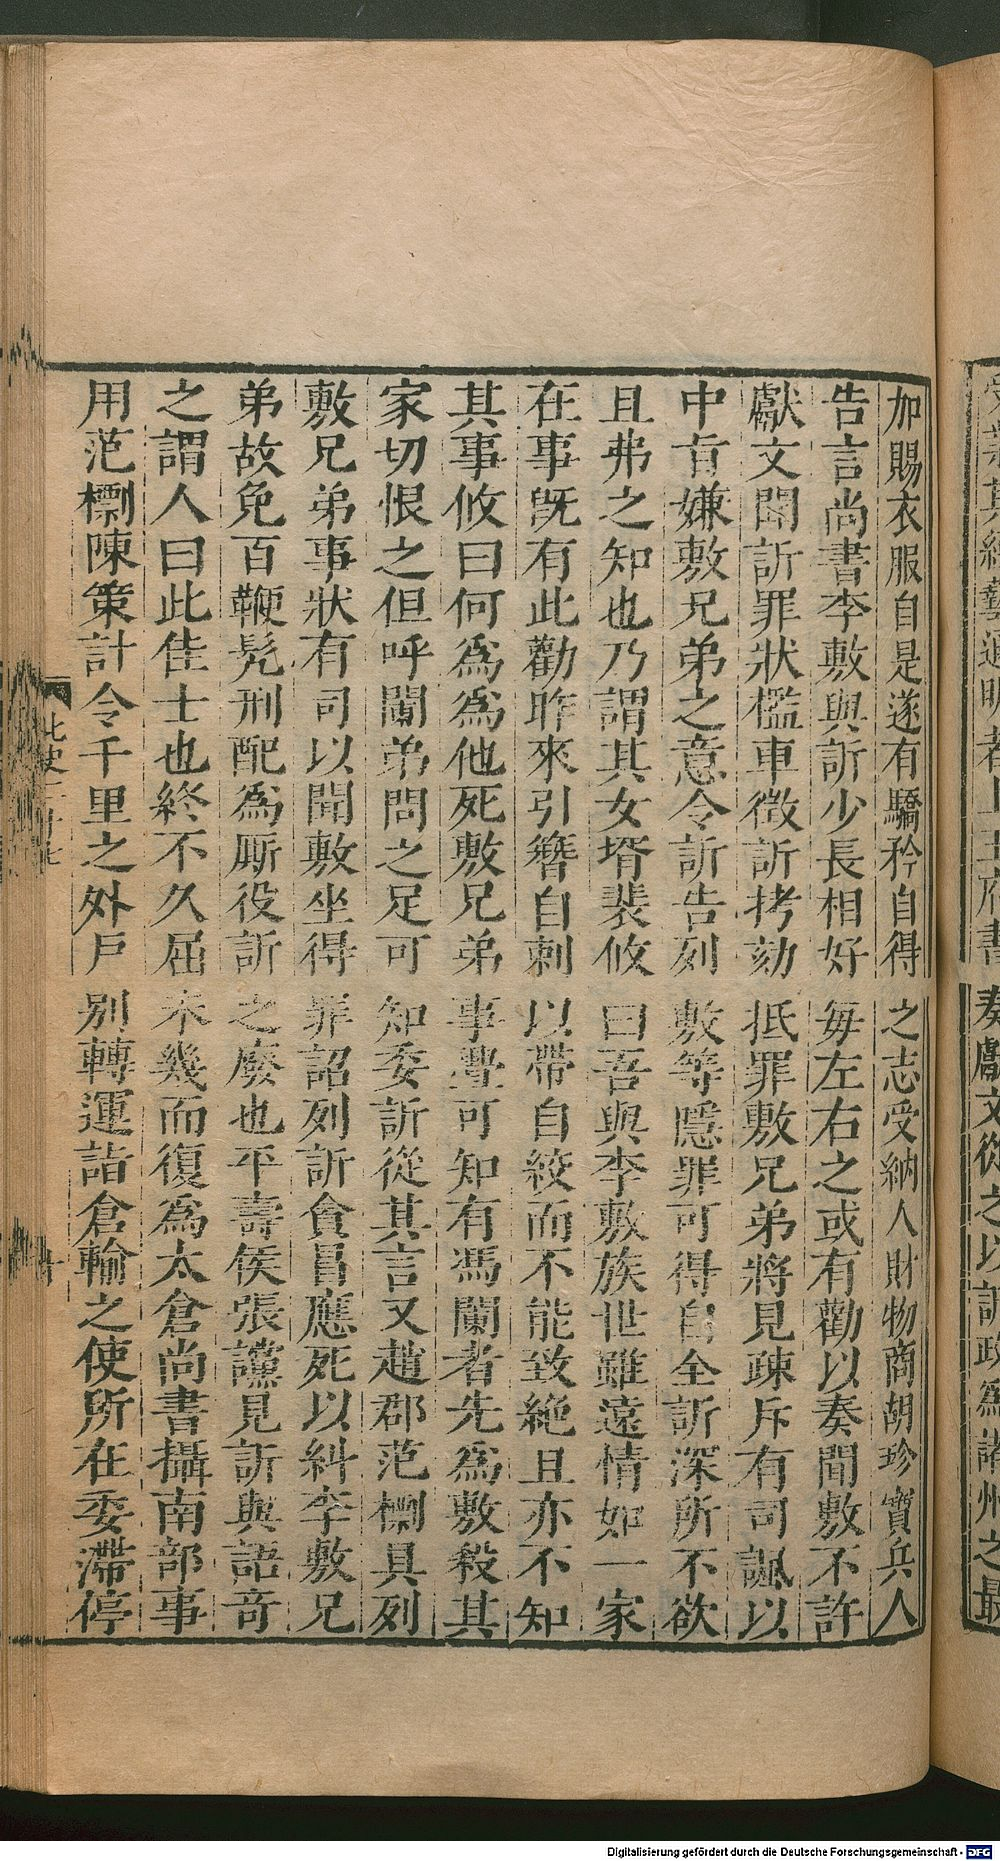 加賜衣服自是遂有驕矜自得之志受納人財物商胡珍寶兵人
告言尚書李敷與訢少長相好每左右之或有勸以奏聞敷不許
獻文聞訢罪狀檻車徵訢拷劾抵罪敷兄弟將見疎斥有司諷以
中旨嫌敷兄弟之意令訢告列敷等隱罪可得自全訢深所不欲
且弗之知也乃謂其女壻裴攸曰吾與李敷族世雖遠情如一家
在事旣有此勸昨來引簪自刺以帶自絞而不能致絶且亦不知
其事攸曰何爲爲他死敷兄弟事舋可知有馮闡者先爲敷殺其
家切恨之但呼闡弟問之足可知委訢從其言又趙郡范檦具列
敷兄弟事狀有司以聞敷坐得罪詔列訢貪冒應死以糾李敷兄
弟故免百鞭髠刑配爲厮役訢之廢也平壽侯張讜見訢與語竒
之謂人曰此佳士也終不久屈未幾而復爲太倉尚書攝南部事
用范檦陳策計令千里之外戶別轉運詣倉輸之使所在委滯停
奏獻文從之以訢政爲諸州之最
Digitalisierung gefördert durch die Deutsche Forschungsgemeinschaft - DFG